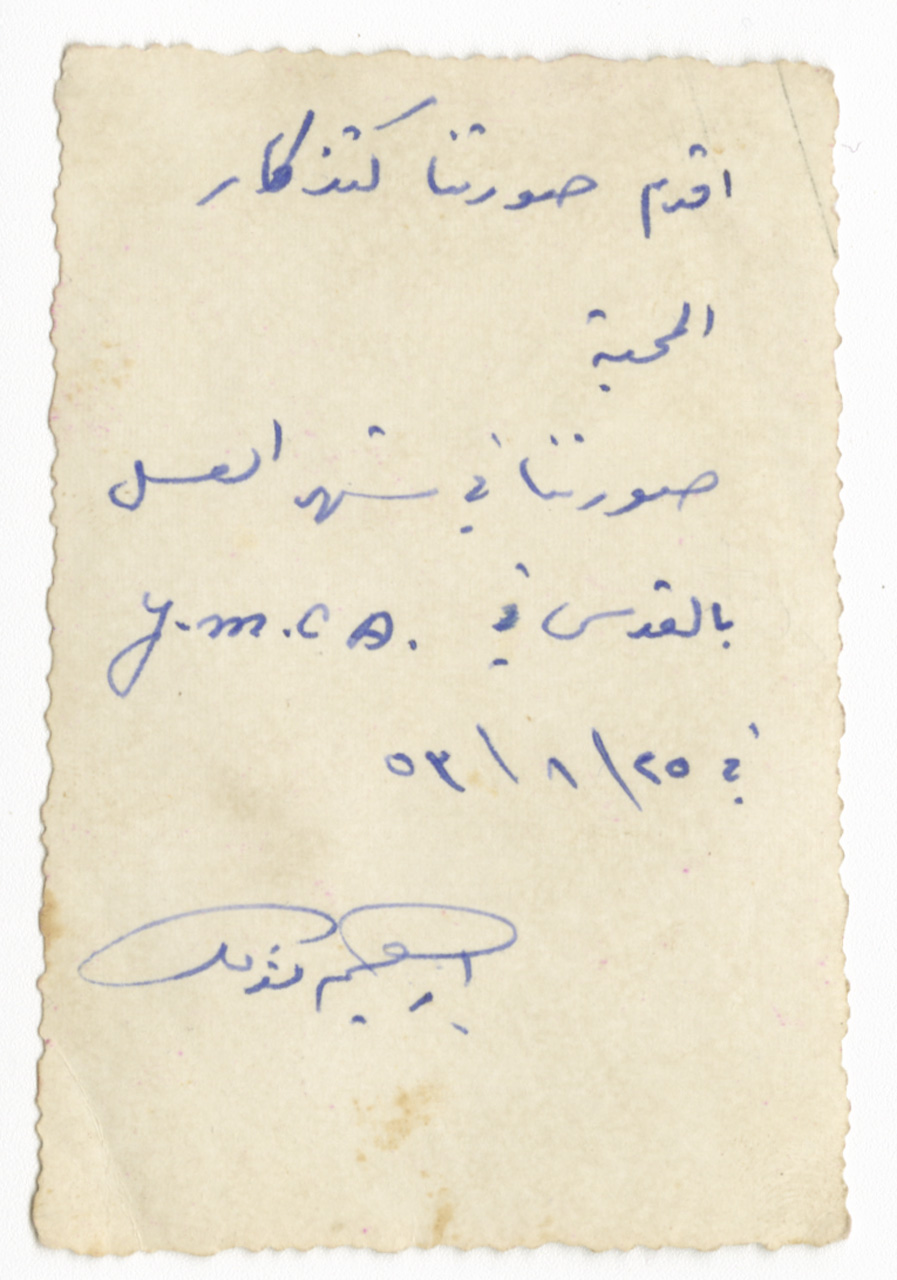 اقدم صورتنا كتذكار
المحبة
صورتنا في شهر العسل
بالقدس في Y.M.C A.
في ٢٥/٨/٥٣
ابرهيم